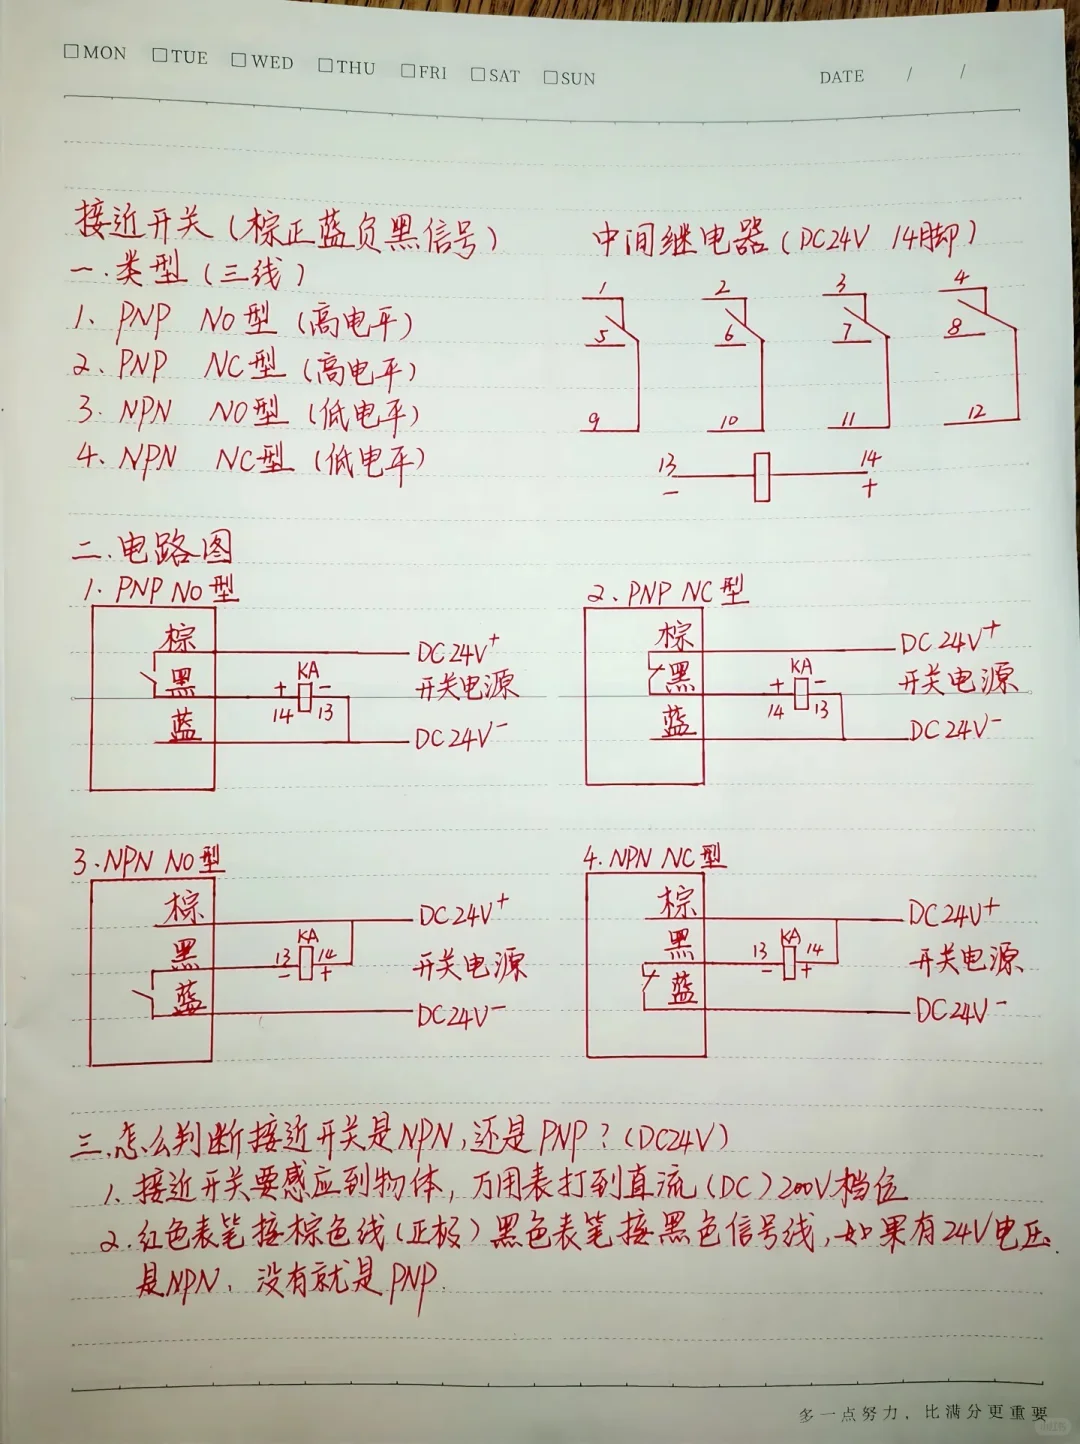 □MON □TUE □WED □THU □FRI □SAT □SUN DATE / /
接近开关(棕正蓝负黑信号)
一.类型(三线)
1、PNP NO型(高电平)
2、PNP NC型(高电平)
3.NPN NO型(低电平)
4.NPN NC型(低电平)
中间继电器(DC24V 14脚)
1 2 3 4
5 6 7 8
9 10 11 12
13 14
- +
二.电路图
1.PNP NO型
棕
黑
蓝
KA
+ -
14 13
DC24V+
开关电源
DC24V-
2、PNP NC型
棕
黑
蓝
KA
+ -
14 13
DC24V+
开关电源
DC24V-
3.NPN NO型
棕
黑
蓝
KA
13 14
- +
DC24V+
开关电源
DC24V-
4.NPN NC型
棕
黑
蓝
KA
13 14
- +
DC24V+
开关电源
DC24V-
三.怎么判断接近开关是NPN,还是PNP?(DC24V)
1.接近开关要感应到物体,万用表打到直流(DC)200V档位
2.红色表笔接棕色线(正极)黑色表笔接黑色信号线,如果有24V电压
是NPN、没有就是PNP.
多一点努力,比满分更重要